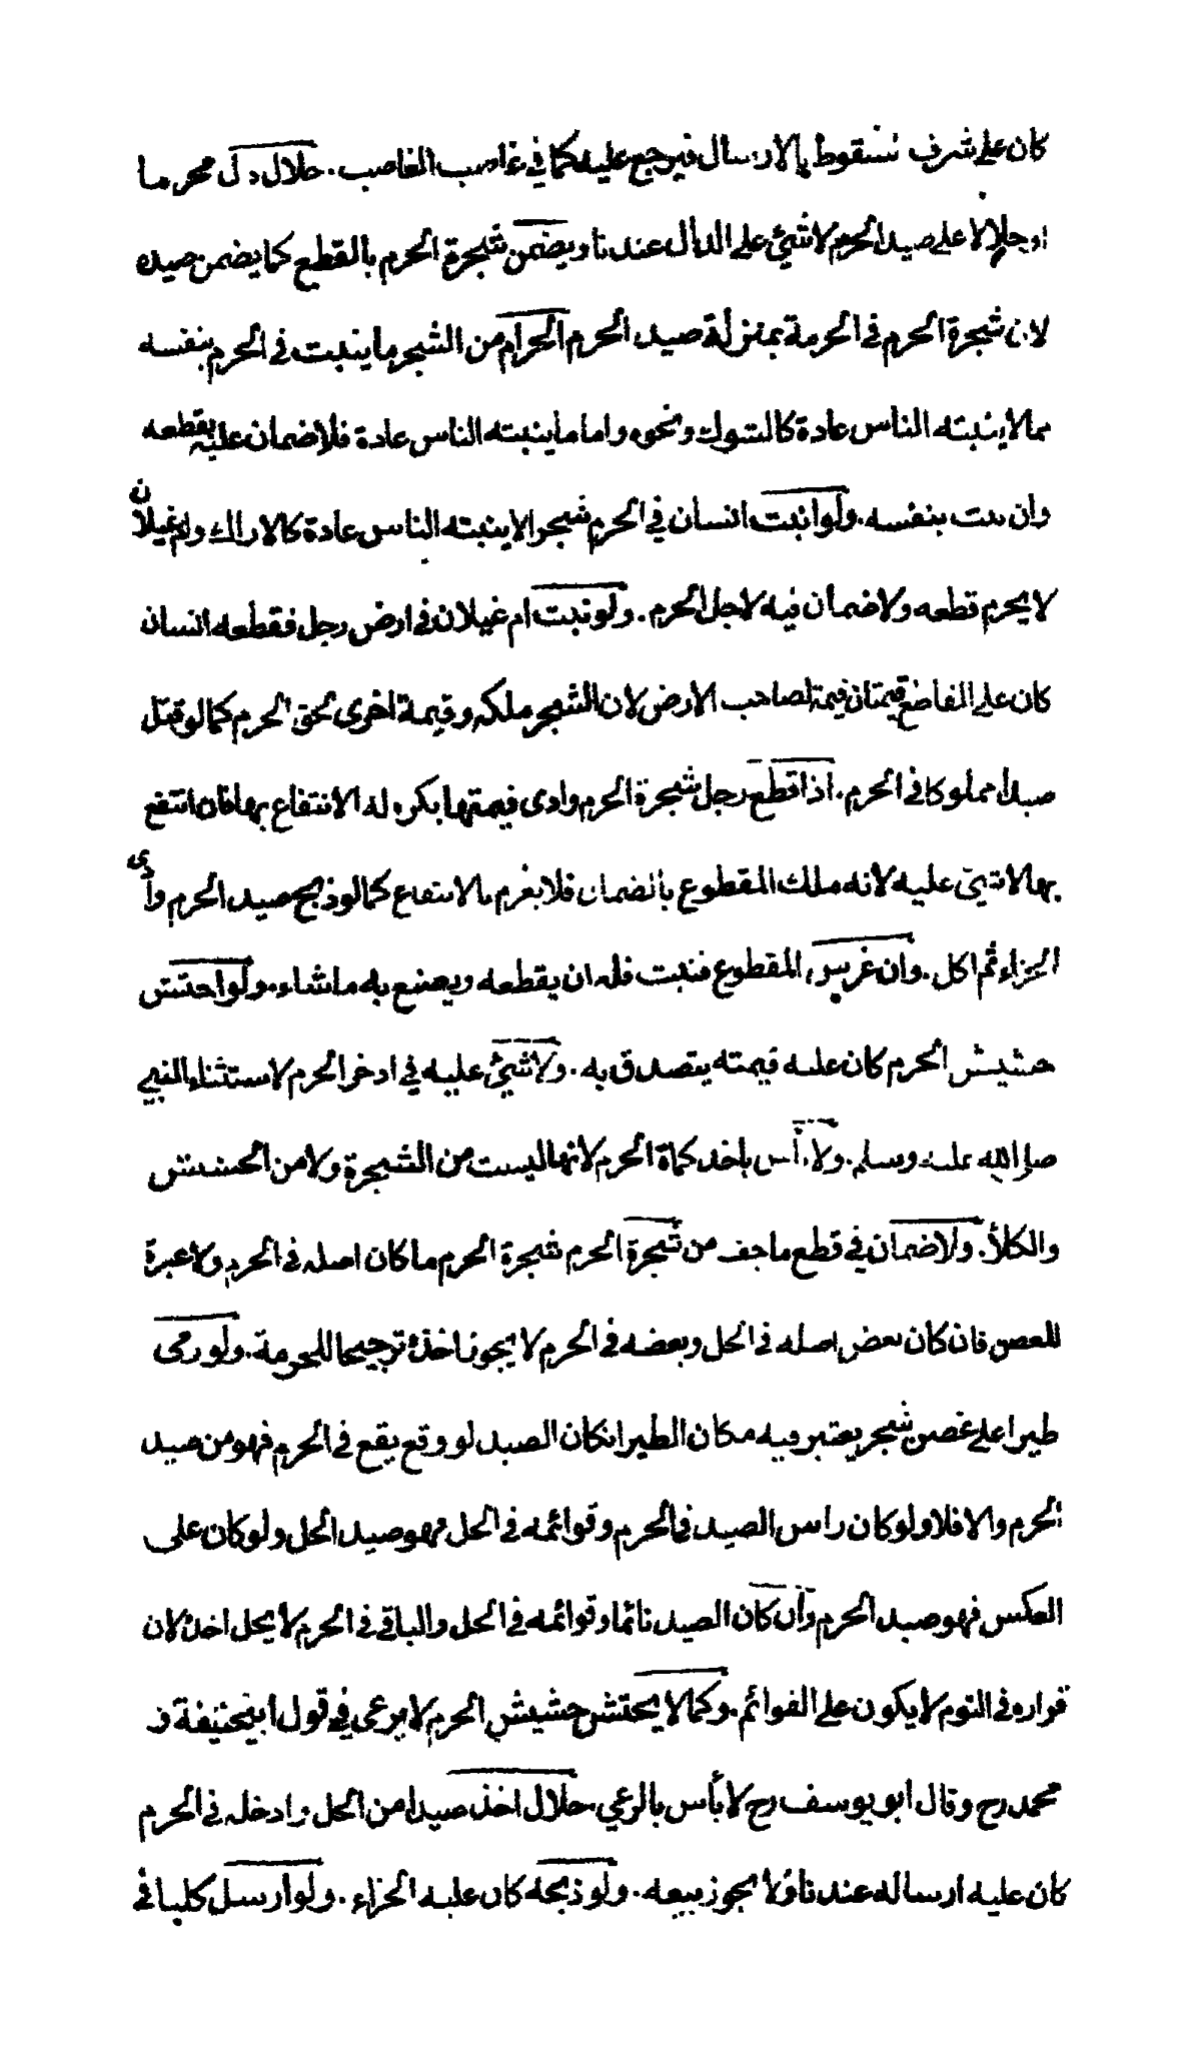 كان على شرف السقوط بالارسال فيرجع عليه كما في غاصب الغاصب. حلال دل محرما
او حلالا على صيد الحرم لا شيئ على الدال عندنا ويضمن شجرة الحرم بالقطع كما يضمن صيده
لان شجرة الحرم في الحرمة بمنزلة صيد الحرم الحرام من الشجر ما ينبت في الحرم بنفسه
مما لا ينبته الناس عادة كالشوك ونحوه واما ما ينبته الناس عادة فلا ضمان عليه بقطعه
وان نبت بنفسه. ولو انبت انسان في الحرم شجرا لا ينبته الناس عادة كالاراك وام غيلان
لا يحرم قطعه ولا ضمان فيه لاجل الحرم. ولو نبت ام غيلان في ارض رجل فقطعه انسان
كان على القاطع قيمتان قيمة لصاحب الارض لان الشجر ملكه وقيمة اخرى لحق الحرم كما لو قتل
صيدا مملوكا في الحرم. اذا قطع رجل شجرة الحرم وادى قيمتها يكره له الانتفاع بها فان انتفع
بها لا شيئ عليه لانه ملك المقطوع بالضمان فلا يغرم بالانتفاع كما لو ذبح صيد الحرم وادى
الجزاء ثم اكل. وان غرس المقطوع فنبت فله ان يقطعه ويصنع به ما شاء. ولو احتش
حشيش الحرم كان عليه قيمته يتصدق به. ولا شيئ عليه في ادخر الحرم لاستثناء النبي
صلى الله عليه وسلم. ولا بأس باخذ كماة الحرم لانها ليست من الشجرة ولا من الحشيش
والكلأ. ولا ضمان في قطع ما جف من شجرة الحرم شجرة الحرم ما كان اصله في الحرم ولا عبرة
للغصن فان كان بعض اصله في الحل وبعضه في الحرم لا يجوز اخذه ترجيحا للحرمة. ولو رمى
طيرا على غصن شجر يعتبر فيه مكان الطير انكان الصيد لو وقع يقع في الحرم فهو من صيد
الحرم والا فلا ولو كان راس الصيد في الحرم وقوائمه في الحل فهو صيد الحل ولو كان على
العكس فهو صيد الحرم وان كان الصيد نائما وقوائمه في الحل والباقي في الحرم لا يحل اخذه لان
قراره في النوم لا يكون على القوائم. وكما لا يحتش حشيش الحرم لا يرعى في قول ابيحنيفة و
محمد رح وقال ابو يوسف رح لا بأس بالرعي. حلال اخذ صيدا من الحل وادخله في الحرم
كان عليه ارساله عندنا ولا يجوز بيعه. ولو ذبحه كان عليه الجزاء. ولو ارسل كلبا في